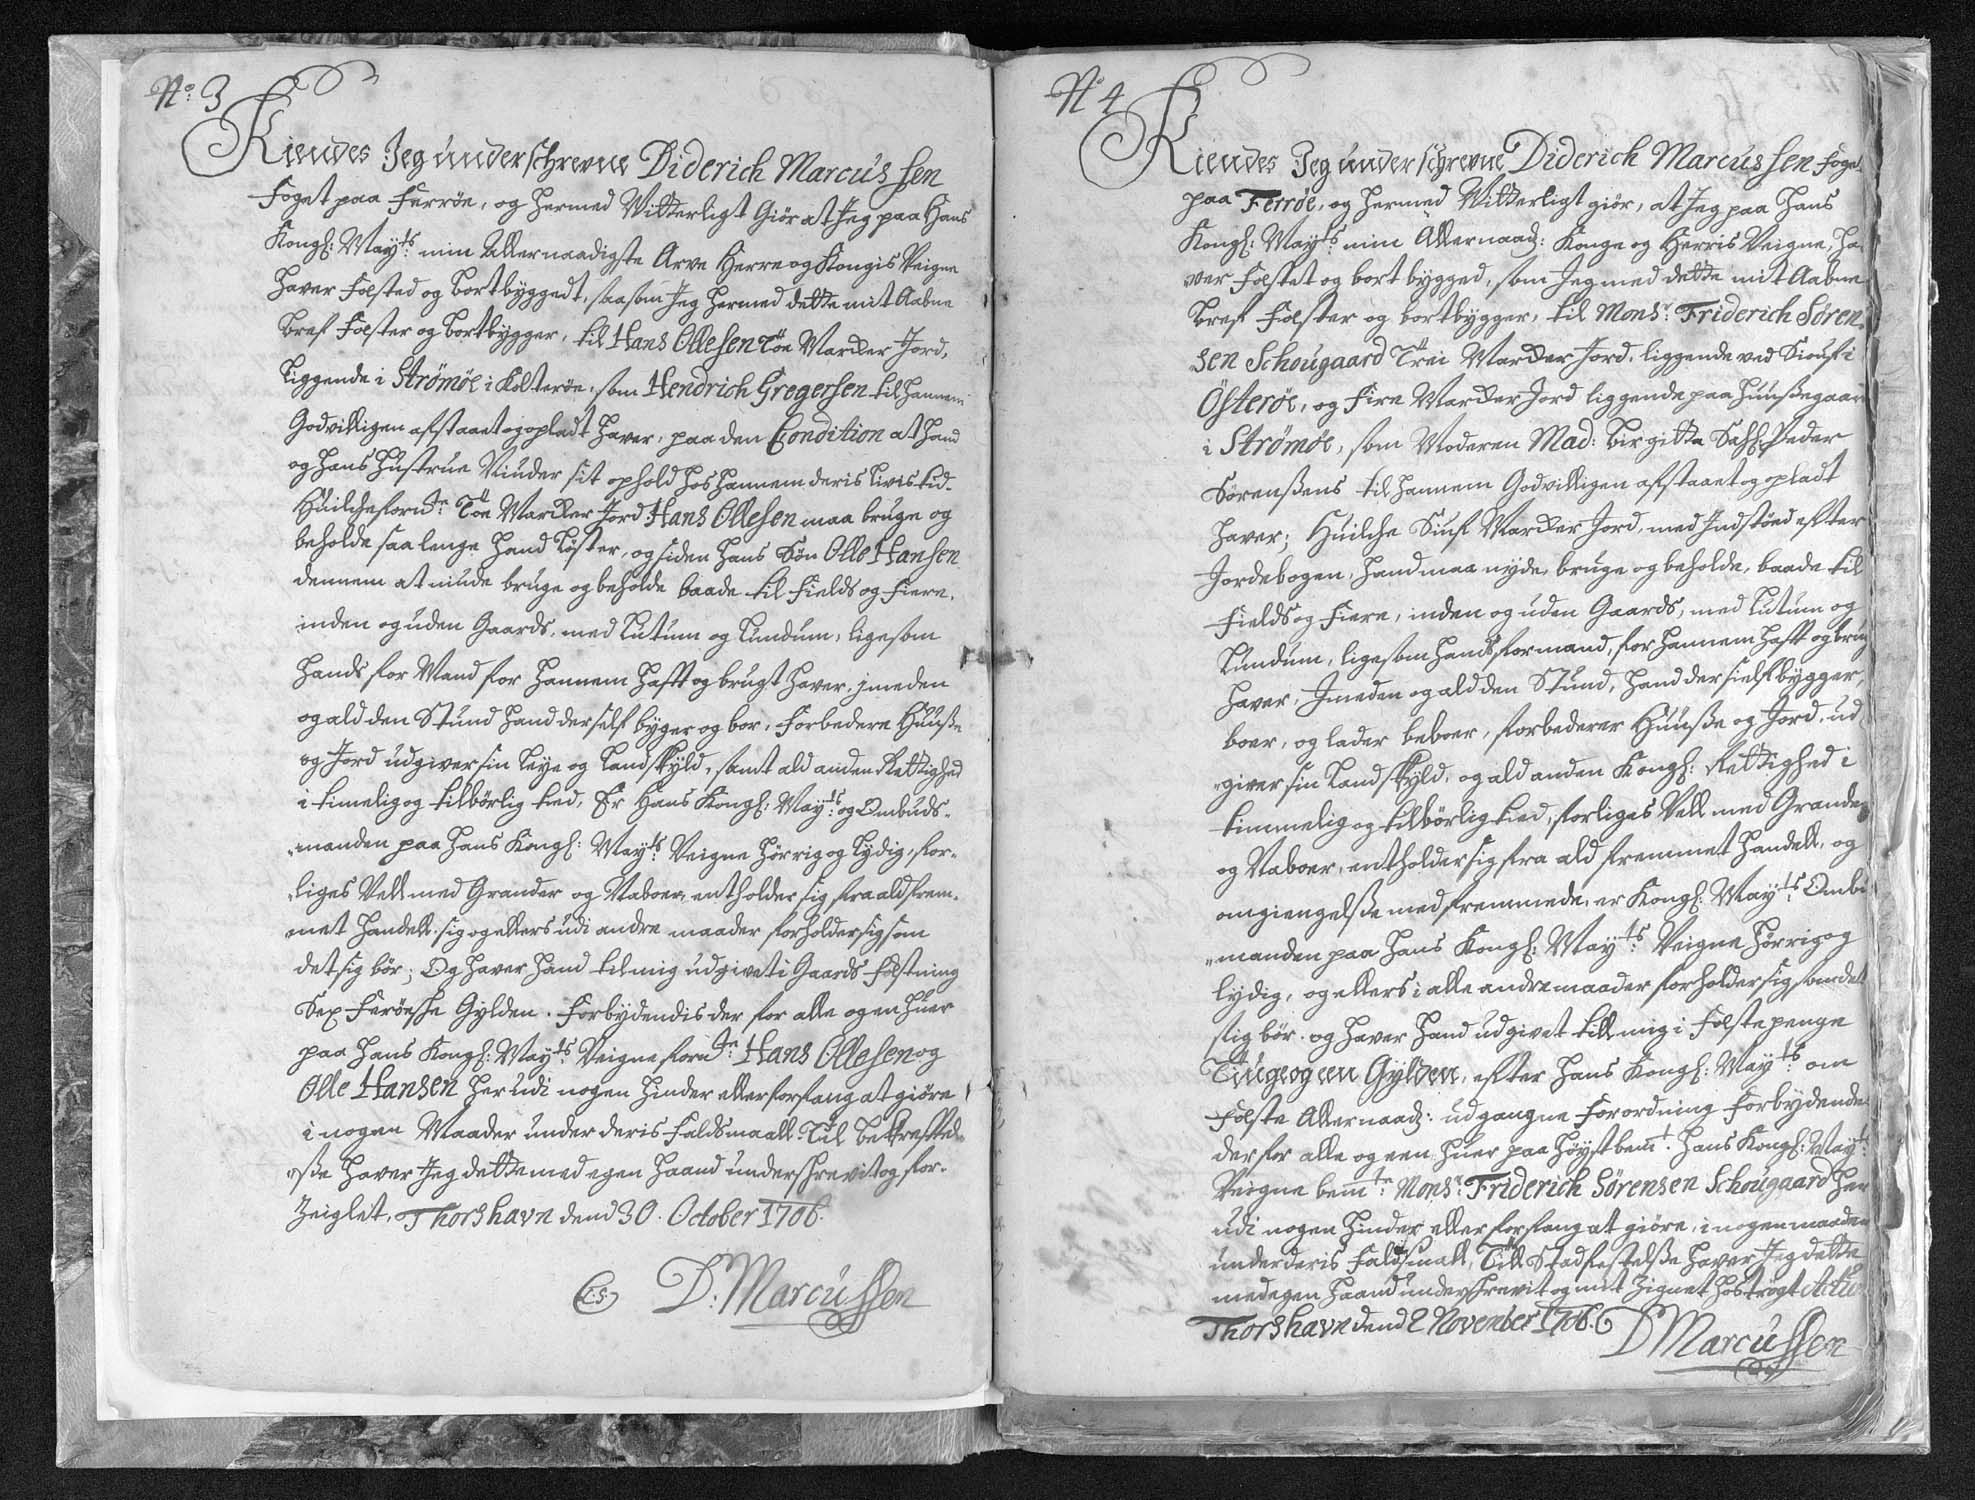 No: 3
Kiendes Jeg underschrevne Diderich Marcussen
Foget paa Ferröe, og hermed Vitterligt Giör at Jeg paa Hans
Kongl: Mayts: min Allernaadigste Arve Herre og Kongis Veigne
hafver fæsted og bortbyggedt, saasom Jeg hermed dette mit Aabne
bref fæster og bortbygger, til Hans Ollesen Töe Marcker Jord,
liggende i Strömöe i Kolteröe, som Hendrich Gregersen til hannem
Godvilligen afstaaet og opladt hafver, paa den Condition at hand
og hans Hustrue Niuder sit ophold hos hannem deris livis tid.
Huilche fornte: Töe Marcker Jord Hans Ollesen maa bruge og
beholde saa lenge hand lyster, og siden hans Sön Olle Hansen
dennem at niude bruge og beholde baade til Fields og Fiere,
inden og uden Gaards, med lutum og lundum, ligesom
hands for Mand for hannem hafft og brugt hafver, jmeden
og ald den Stund hand der self byger og bor, forbedere Huuse
og Jord udgiver sin leye og Landskyld, samt ald anden Rettighed
i timelig og tilbörlig tied, Er Hans Kongl: Mayts: og Ombuds-
manden paa Hans Kongl: Mayts: Veigne hörrig og lydig, for-
liges Vell med Grander og Naboer, entholder sig fra ald frem-
met Handell. sig og ellers udi andre maader forholder sig som
det sig bör; Og hafver hand til mig udgivet i Gaards fæstning
Sex Feröeshe Gylden. Forbydendis der for alle og en huer
paa Hans Kongl: Mayts: Veigne fornte: Hans Ollesen og
Olle Hansen her udi nogen hinder eller forfang at giöre
i nogen Maader under deris faldsmaall Til bekrefftel-
se hafver Jeg dette med egen haand underskrevit og for-
Zeiglet. Thorshavn dend 30. October 1706.
L:S: D: Marcussen
No 4
Kiendes Jeg underschrevne Diderich Marcussen Foget
paa Ferröe, og hermed Vitterligt giör, at Jeg paa Hans
Kongl: Mayts: min Allernaad: Konge og Herris Veigne, ha-
ver fæstet og bort bygged, som Jeg med dette mit Aabne
bref fæster og bortbygger, til Monsr: Friderich Sören-
sen Schougaard Trei Marcker Jord, liggende ved Siouf i
Österöe, og Fire Marcker Jord liggende paa Huusegaard
i Strömöe, som Moderen Mad: Birgitta Sahl: Peder
Sörensens til hannem Godvilligen afstaaet og opladt
hafver; Huilche Siuf Marcker Jord, med Indstöed efter
Jordebogen, hand maa nyde, bruge og beholde, baade til
Fields og Fiere, inden og uden Gaards, med lutum og
lundum, ligesom hands formand, for hannem hafft og brug
hafver, Imeden og ald den Stund, hand der sielf bygger,
boer, og lader beboer, forbederer Huuse og Jord, ud-
giver sin Landskyld, og ald anden Kongl: Rettighed i
timmelig og tilbörlig tied, forliges Vell med Grander
og Naboer, entholder sig fra ald fremmet Handell, og
omgiengelse med fremmede, er Kongl: Mayts: Ombu
manden paa Hans Kongl: Mayts: Veigne hörrig og
lydig, og ellers i alle andre maader forholder sig som det
sig bör. og hafver hand udgivet till mig i fæstepenge
Tiuge og een Gylden, efter Hans Kongl: Mayts: om
fæste Allernaad: udgangne Forordning Forbydende
der for alle og een huer paa höystbemt: Hans Kongl: Mayts:
Veigne bemte: Monsr: Friderich Sörensen Schougaard her
udi nogen hinder eller forfang at giöre, i nogen maader
under deris Faldsmall, Till Stadfestelse hafver Jeg dette
med egen haand underskrevit og mit Zignet hos trögt Actum
Thorshavn dend 2 November 1706. D Marcussen